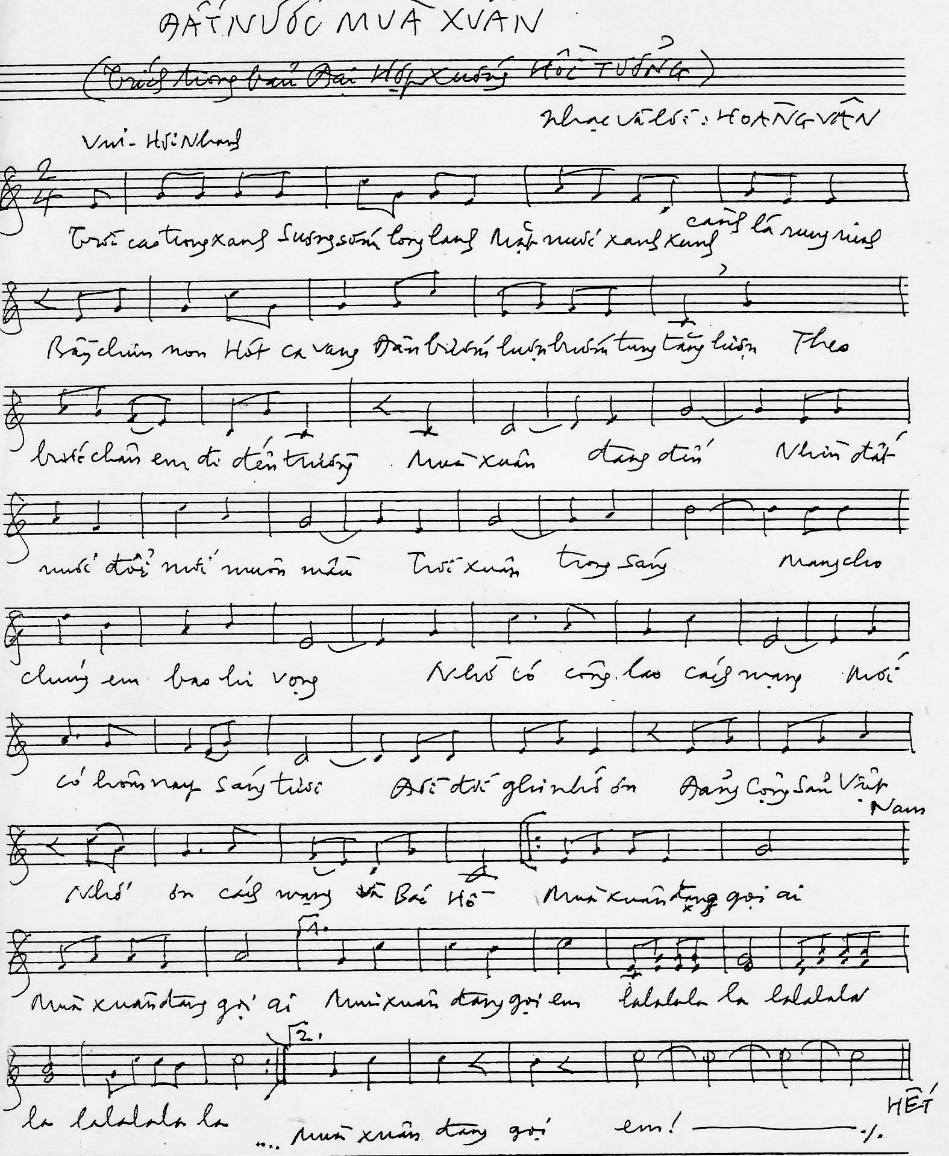 ĐẤT NƯỚC MÙA XUÂN
(Trích trong bản Đại Hợp xướng HỒI TƯỞNG)
Nhạc và lời: HOÀNG VÂN
Vui - Hơi Nhanh
2
4
Trời cao trong xanh Sương sớm long lanh Mặt nước xanh xanh cành lá rung rinh
Bầy chim non Hót ca vang Đàn bướm lượn bướm tung tăng liệng Theo
bước chân em đi đến trường Mùa xuân đang đến Nhìn đất
nước đổi mới muôn màu Trời xuân trong sáng mang cho
chúng em bao hi vọng Nhớ có công lao cách mạng Mới
có hôm nay sáng tươi Đời đời ghi nhớ ơn Đảng Cộng Sản Việt
Nam
Nhớ ơn cách mạng và Bác Hồ Mùa xuân đang gọi ai
1.
Mùa xuân đang gọi ai Mùa xuân đang gọi em lalalala la lalalala
2.
la lalalala la
.... Mùa xuân đang gọi em!
HẾT